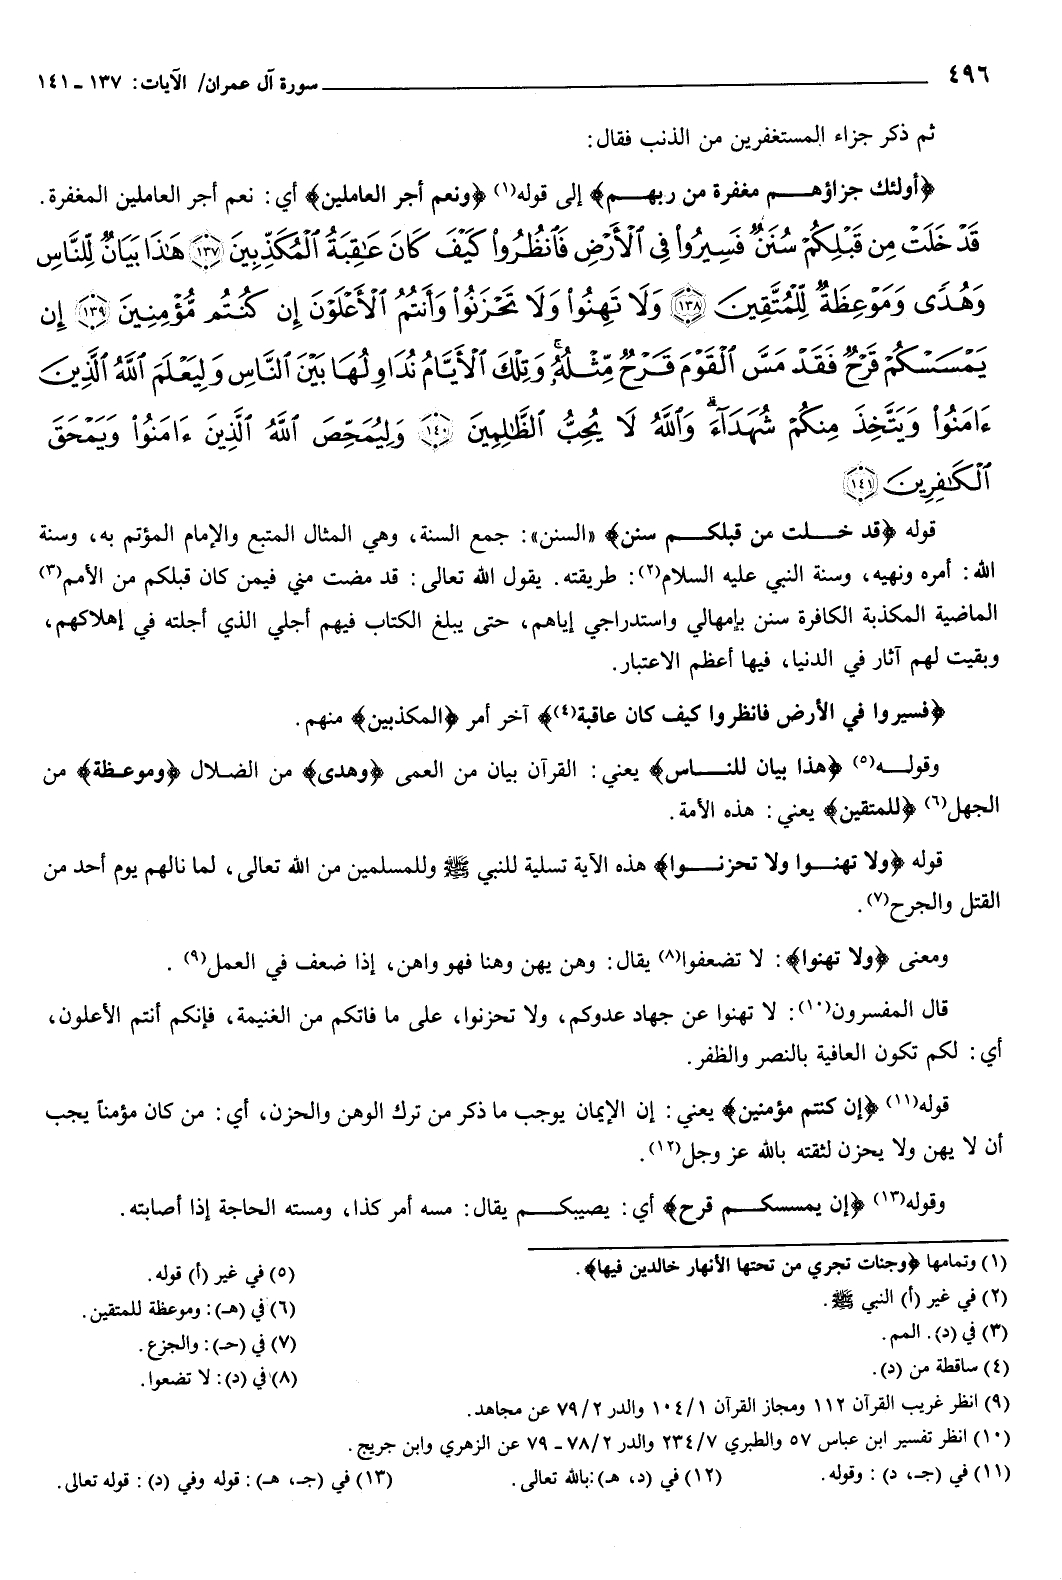 ٤٩٦ سورة آل عمران/ الآيات: ١٣٧ - ١٤١
ثم ذكر جزاء المستغفرين من الذنب فقال:
﴿أولئك جزاؤهم مغفرة من ربهم﴾ إلى قوله(١) ﴿ونعم أجر العاملين﴾ أي: نعم أجر العاملين المغفرة.
قَدْ خَلَتْ مِن قَبْلِكُمْ سُنَنٌ فَسِيرُوا۟ فِى ٱلْأَرْضِ فَٱنظُرُوا۟ كَيْفَ كَانَ عَـٰقِبَةُ ٱلْمُكَذِّبِينَ ١٣٧ هَـٰذَا بَيَانٌ لِّلنَّاسِ
وَهُدًى وَمَوْعِظَةٌ لِّلْمُتَّقِينَ ١٣٨ وَلَا تَهِنُوا۟ وَلَا تَحْزَنُوا۟ وَأَنتُمُ ٱلْأَعْلَوْنَ إِن كُنتُم مُّؤْمِنِينَ ١٣٩ إِن
يَمْسَسْكُمْ قَرْحٌ فَقَدْ مَسَّ ٱلْقَوْمَ قَرْحٌ مِّثْلُهُۥ ۚ وَتِلْكَ ٱلْأَيَّامُ نُدَاوِلُهَا بَيْنَ ٱلنَّاسِ وَلِيَعْلَمَ ٱللَّهُ ٱلَّذِينَ
ءَامَنُوا۟ وَيَتَّخِذَ مِنكُمْ شُهَدَآءَ ۗ وَٱللَّهُ لَا يُحِبُّ ٱلظَّـٰلِمِينَ ١٤٠ وَلِيُمَحِّصَ ٱللَّهُ ٱلَّذِينَ ءَامَنُوا۟ وَيَمْحَقَ
ٱلْكَـٰفِرِينَ ١٤١
قوله ﴿قد خلت من قبلكم سنن﴾ «السنن»: جمع السنة، وهي المثال المتبع والإمام المؤتم به، وسنة
الله: أمره ونهيه، وسنة النبي عليه السلام(٢): طريقته. يقول الله تعالى: قد مضت مني فيمن كان قبلكم من الأمم(٣)
الماضية المكذبة الكافرة سنن بإمهالي واستدراجي إياهم، حتى يبلغ الكتاب فيهم أجلي الذي أجلته في إهلاكهم،
وبقيت لهم آثار في الدنيا، فيها أعظم الاعتبار.
﴿فسيروا في الأرض فانظروا كيف كان عاقبة(٤)﴾ آخر أمر ﴿المكذبين﴾ منهم.
وقوله(٥) ﴿هذا بيان للناس﴾ يعني: القرآن بيان من العمى ﴿وهدى﴾ من الضلال ﴿وموعظة﴾ من
الجهل(٦) ﴿للمتقين﴾ يعني: هذه الأمة.
قوله ﴿ولا تهنوا ولا تحزنوا﴾ هذه الآية تسلية للنبي ﷺ وللمسلمين من الله تعالى، لما نالهم يوم أحد من
القتل والجرح(٧).
ومعنى ﴿ولا تهنوا﴾: لا تضعفوا(٨) يقال: وهن يهن وهنا فهو واهن، إذا ضعف في العمل(٩).
قال المفسرون(١٠): لا تهنوا عن جهاد عدوكم، ولا تحزنوا، على ما فاتكم من الغنيمة، فإنكم أنتم الأعلون،
أي: لكم تكون العافية بالنصر والظفر.
قوله(١١) ﴿إن كنتم مؤمنين﴾ يعني: إن الإيمان يوجب ما ذكر من ترك الوهن والحزن، أي: من كان مؤمناً يجب
أن لا يهن ولا يحزن لثقته بالله عز وجل(١٢).
وقوله(١٣) ﴿إن يمسسكم قرح﴾ أي: يصيبكم يقال: مسه أمر كذا، ومسته الحاجة إذا أصابته.
(١) وتمامها ﴿وجنات تجري من تحتها الأنهار خالدين فيها﴾.
(٢) في غير (أ) النبي ﷺ.
(٣) في (د). المم.
(٤) ساقطة من (د).
(٥) في غير (أ) قوله.
(٦) في (هـ): وموعظة للمتقين.
(٧) في (حـ): والجزع.
(٨) في (د): لا تضعوا.
(٩) انظر غريب القرآن ١١٢ ومجاز القرآن ١٠٤/١ والدر ٧٩/٢ عن مجاهد.
(١٠) انظر تفسير ابن عباس ٥٧ والطبري ٢٣٤/٧ والدر ٧٨/٢ - ٧٩ عن الزهري وابن جريج.
(١١) في (جـ، د) : وقوله. (١٢) في (د، هـ):بالله تعالى. (١٣) في (جـ، هـ): قوله وفي (د): قوله تعالى.